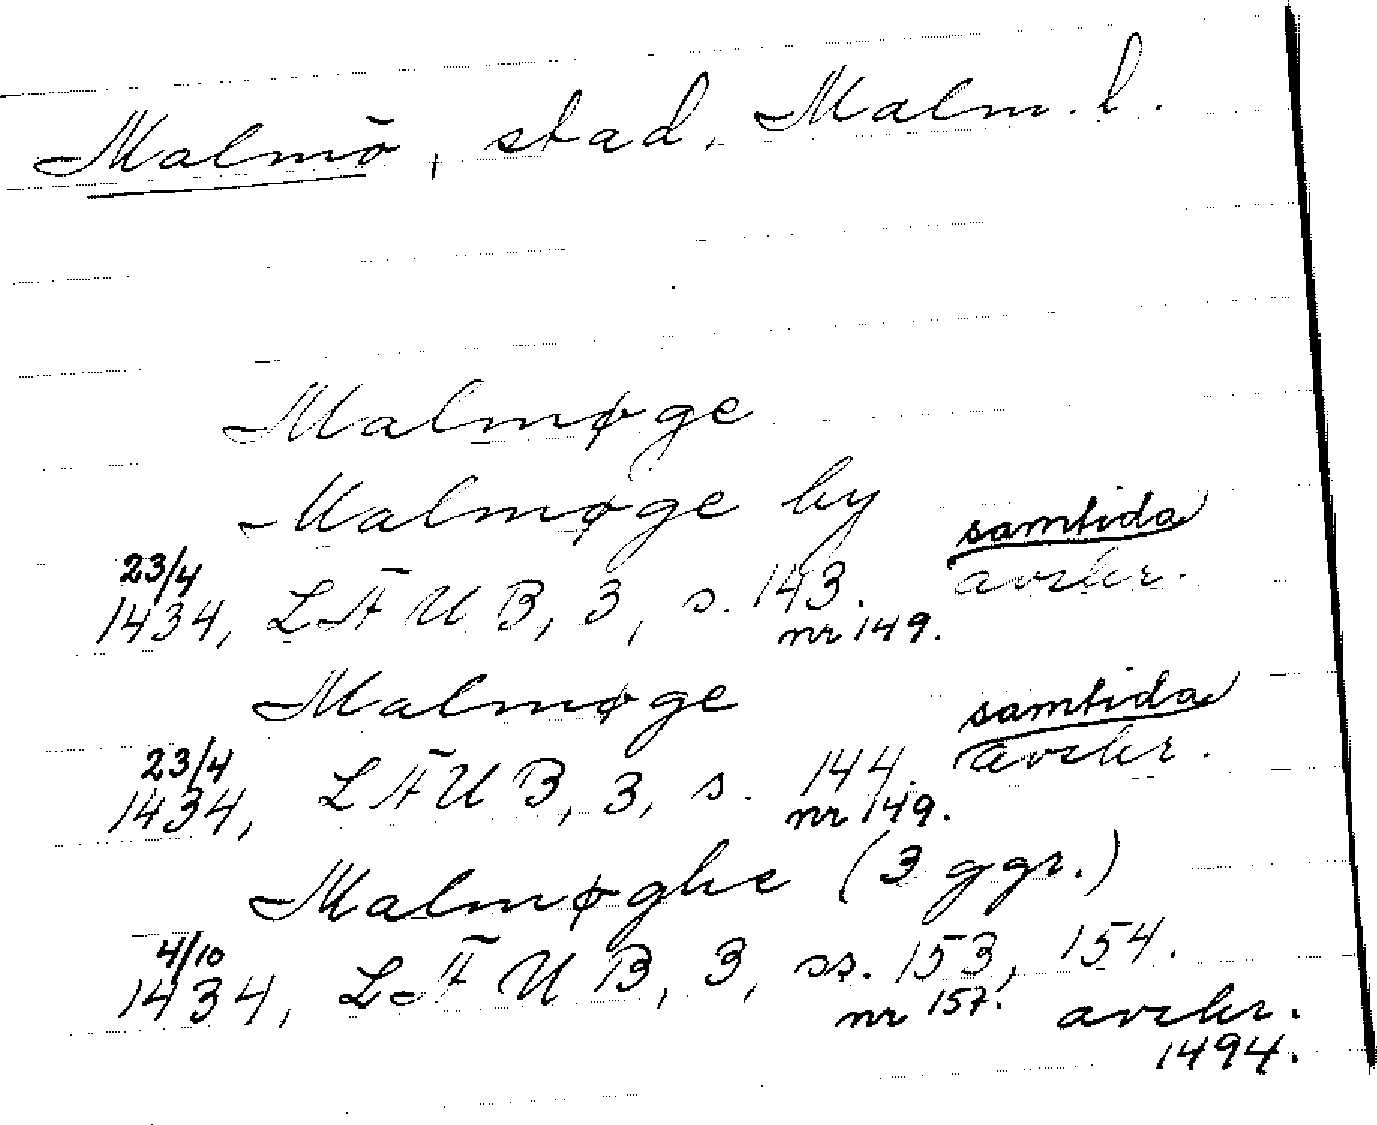 Malmö, stad, Malm. l.
Malmøge
Malmøge by
23/4 1434, LÄUB, 3, s. 143. nr 149. samtida avskr.
Malmøge
23/4 1434, LÄUB, 3, s. 144. nr 149. samtida avskr.
Malmøghe (3 ggr.)
4/10 1434, LÄUB, 3, ss. 153, 154.
nr 157. avskr.
1494.